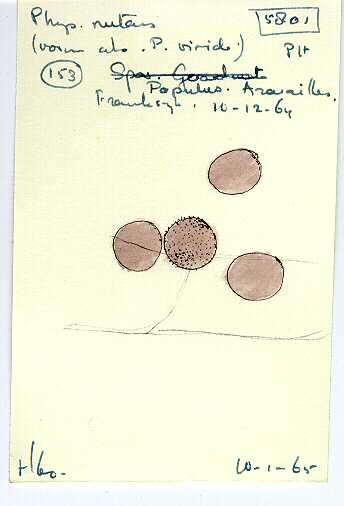 Phys. nutans 5801
(vorm als. P. viride.) Plt
153 Spos. Goodaert
Populus. Aravailles.
Frankrijk. 10-12-64
H/60. 10-1-65